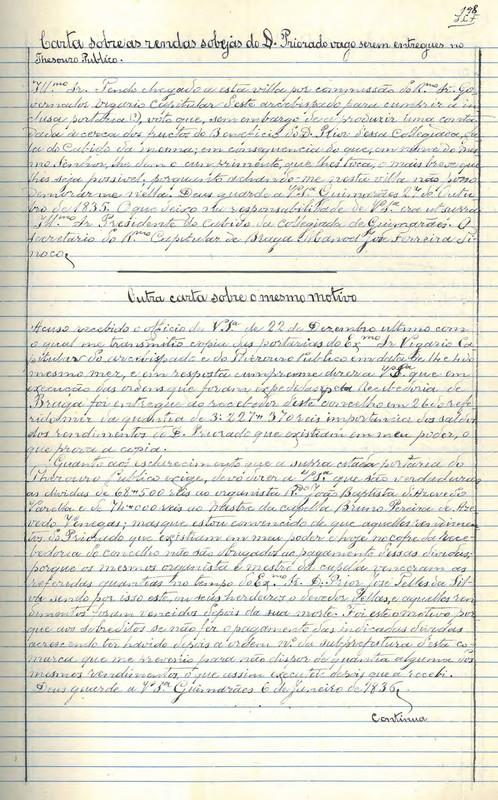 198
Carta sobre as rendas sobejas do D. Priorado vago serem entregues no
Thesouro Publico.
Ill.mo Sr. Tendo chegado a esta villa por commissão do R.mo Sr. Go-
vernador vigario Capitular deste arcebispado para cumprir a in-
clusa portaria (1), veja que, sem embargo deve produzir uma conta
dada à cerca dos fructos do Beneficio do D. Prior d'essa Collegiada, fa-
ça do Cabido da mesma; em consequencia do que, em nome do mes-
mo Senhor, lhe dêm o cumprimento, que lhes toca, o mais breve que
lhes seja possivel, porquanto achando-me nesta villa não posso
demorar-me n'ella. Deus guarde a V. S.ª Guimarães 2 de Outu-
bro de 1835. O que deixo na responsabilidade de V. S.ª era ut supra
Ill.mo Sr. Presidente do Cabido da Collegiada de Guimarães. O
Secretario do R.mo Capitular de Braga Manoel José Ferreira Ti-
noco,
Outra carta sobre o mesmo motivo
Acuso recebido o officio de V. S.ª de 22 de Dezembro ultimo com
o qual me transmitio copia das portarias do Ex.mo Sr. Vigario Ca-
pitular do arcebispado e do Thesouro Publico em data de 14 e 4 do
mesmo mez, e em resposta cumpre-me dizer a V. S.ª que em
execução das ordens que foram expedidas pela Recebedoria de
Braga foi entregue ao recebedor deste concelho em 26 do refe-
rido mez da quantia de 3:227$370 reis importancia dos saldos
dos rendimentos do D. Priorado que existiam em meu poder, o
que prova a copia.
Quanto aos esclarecimentos que a supra citada portaria do
Thesouro Publico exige, devo dizer a V. S.ª que são verdadeiras
as dividas de 68$500 réis ao organista R.do P.e João Baptista d'Azevedo
Varella e de 74$000 reis ao mestre da capella Bruno Pereira de Aze-
vedo Venegas; mas que estou convencido de que aquelles rendimen-
tos do Priorado que existiam em meu poder e hoje no cofre da Rece-
bedoria do concelho não são obrigados ao pagamento d'essas dividas;
porque os mesmos organista e mestre da capela venceram as
referidas quantias no tempo do Ex.mo Sr. D. Prior José Telles da Sil-
va sendo por isso este, ou seus herdeiros o devedor d'ellas, e aquelles ren-
dimentos foram vencidos depois da sua morte. Foi este o motivo por
que aos sobreditos se não fez o pagamento das indicadas dividas
acrescendo ter havido depois a ordem da subprefeitura d'esta co-
marca que me prevenia para não dispor de quantia alguma dos
mesmos rendimentos o que assim executei desde que a recebi.
Deus guarde a V. S.ª Guimarães 6 de Janeiro de 1836.
Continua